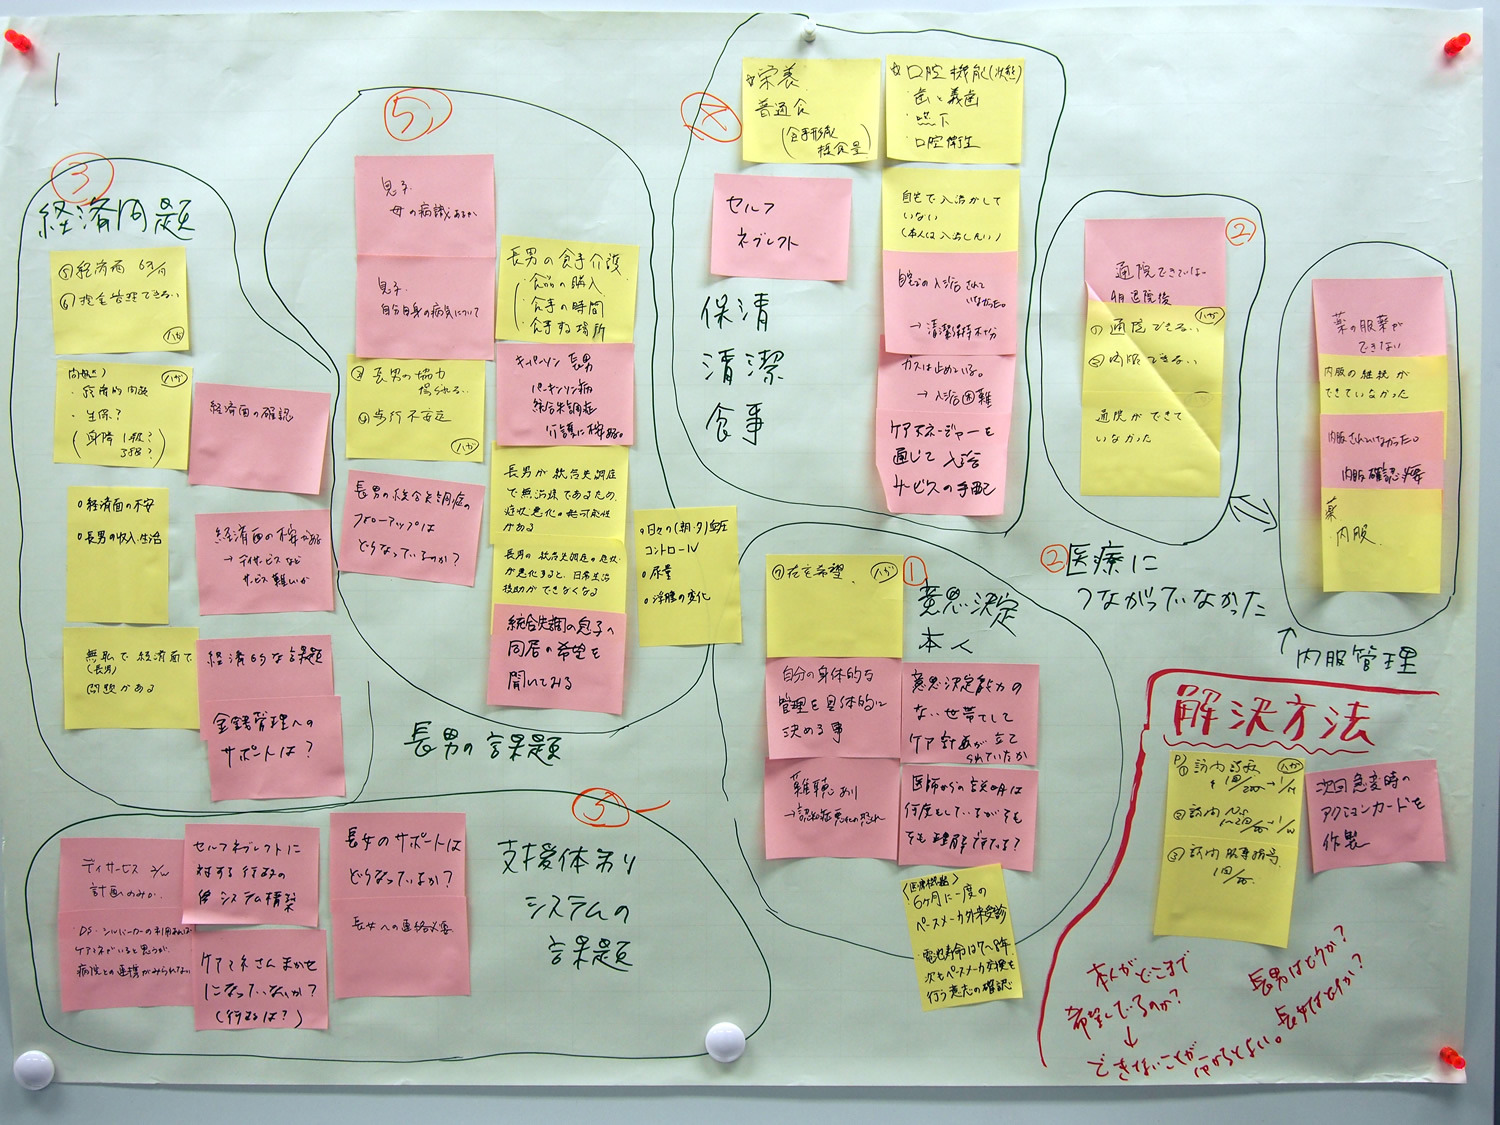 ③
経済問題
⑤経済面 6万/月
⑥現金管理できない
ハガ
問題点)
ハガ
・経済的問題
・生保?
(身障1級?
経済面の確認
○経済面の不安
○長男の収入、生活
経済面の不安がある
→デイサービスなど
サービス難しいか
無職で経済面で
(長男)
問題がある
経済的な課題
金銭管理への
サポートは?
⑤
息子
母の病識あるか
息子
自分自身の病気について
長男の食事介護
・食品の購入
・食事の時間
・食事する場所
③長男の協力
得られない
④歩行不安定
ハガ
キーパーソン 長男
パーキンソン病
統合失調症
介護に不安ある。
長男の統合失調症の
フォローアップは
どうなっているのか?
長男が統合失調症
で無治療であるため、
症状悪化の可能性
がある
長男の統合失調症の症状
が悪化すると、日常生活
援助ができなくなる
統合失調の息子へ
同居の希望を
聞いてみる
長男の課題
○日々の(朝・夕)血圧
コントロール
○尿量
○浮腫の変化
④
☆栄養
普通食
(食事形態
摂食量)
☆口腔機能(状態)
・歯と義歯
・嚥下
・口腔衛生
セルフ
ネグレクト
自宅で入浴がして
いない
(本人は入浴したい)
自宅での入浴されて
いなかった。
→清潔保持不十分
ガスは止めている。
→入浴困難
ケアマネージャーを
通じて入浴
サービスの手配
保清
清潔
食事
②
通院できていない
4月退院後
ハガ
①通院できない
②内服できない
通院ができて
いなかった
②医療に
つながっていなかった
薬の服薬が
できない
内服の継続が
できていなかった
内服されていなかった。
内服確認必要
薬
・内服
↑
内服管理
①
意思決定
本人
⑦在宅希望
ハガ
自分の身体的な
管理を具体的に
決める事
意思決定能力の
ない世帯として
ケア計画が立て
られていたか
難聴あり
→認知症悪化の恐れ
医師からの説明は
何度もしているがそも
そも理解できている?
〈医療機器〉
6ヶ月に一度の
ペースメーカ外来受診
・電池寿命は7〜8年、
次もペースメーカ交換を
行う意志の確認
⑤
支援体制
システムの
課題
デイサービス
計画のみか
セルフネグレクトに
対する行政の
システム構築
長女のサポートは
どうなっているか?
・DS・シルバーカーの利用あれば
ケアマネがいると思うが、
病院との連携がみられない
ケアマネさんまかせ
になっていないか?
(行政は?)
長女への連絡必要
解決方法
①訪問診療
ハガ
②訪問Ns
③訪問服薬指導
次回急変時の
アクションカードを
作製
本人がどこまで
希望しているのか?
↓
できないことが分からない。
長男はどうか?
長女はどうか?